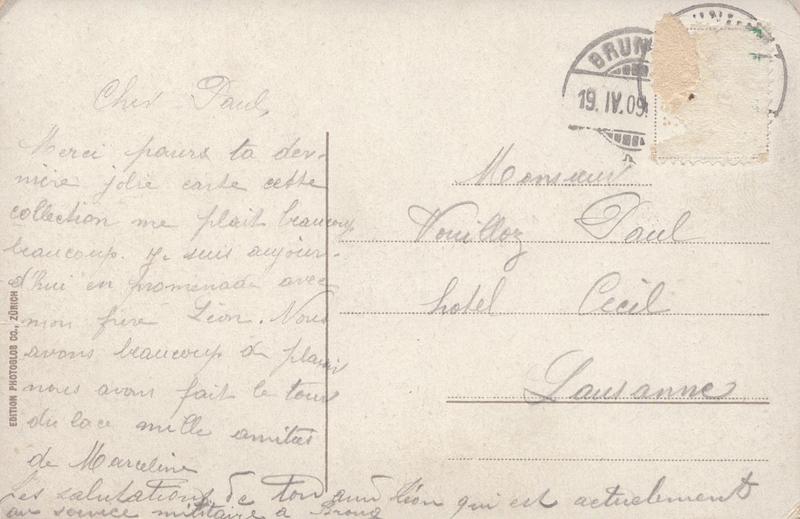 Cher Paul,
Merci pours ta der-
nière jolie carte cette
collection me plait beaucoup
beaucoup. Je suis aujour-
d'hui en promenade avec
mon frère Léon. Nous
avons beaucoup de plaisir
nous avons fait le tour
du lace mille amitiés
de Marceline
Les salutations de ton ami Léon qui est actuelement
au service militaire a
BRUN
19. IV. 09
Monsieur
Vouilloz Paul
hotel Cecil
Lausanne
EDITION PHOTOGLOB CO., ZÜRICH